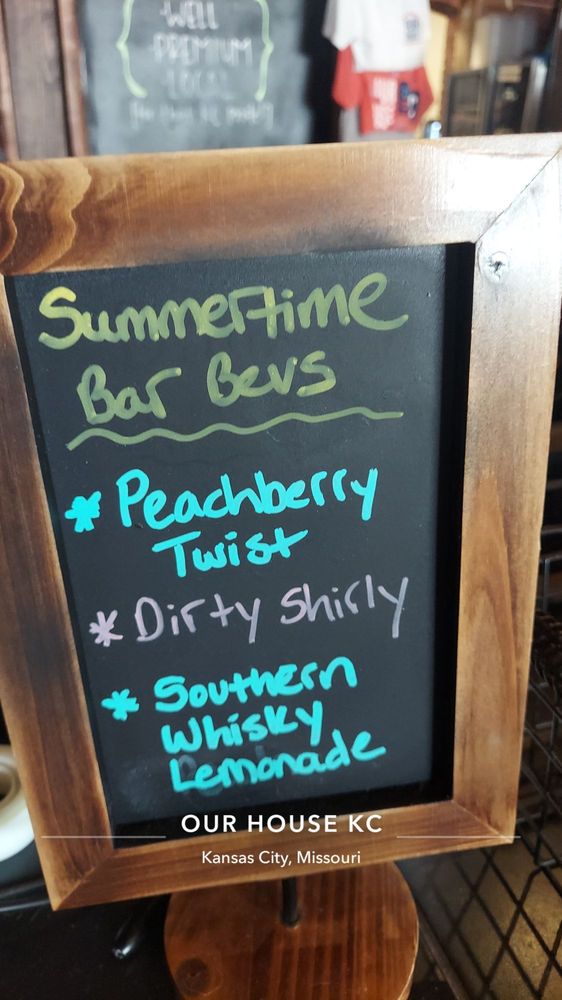 WELL
PREMIUM
LOCAL
Summertime
Bar Bevs
* Peachberry
Twist
* Dirty Shirly
* Southern
Whisky
Lemonade
OUR HOUSE KC
Kansas City, Missouri